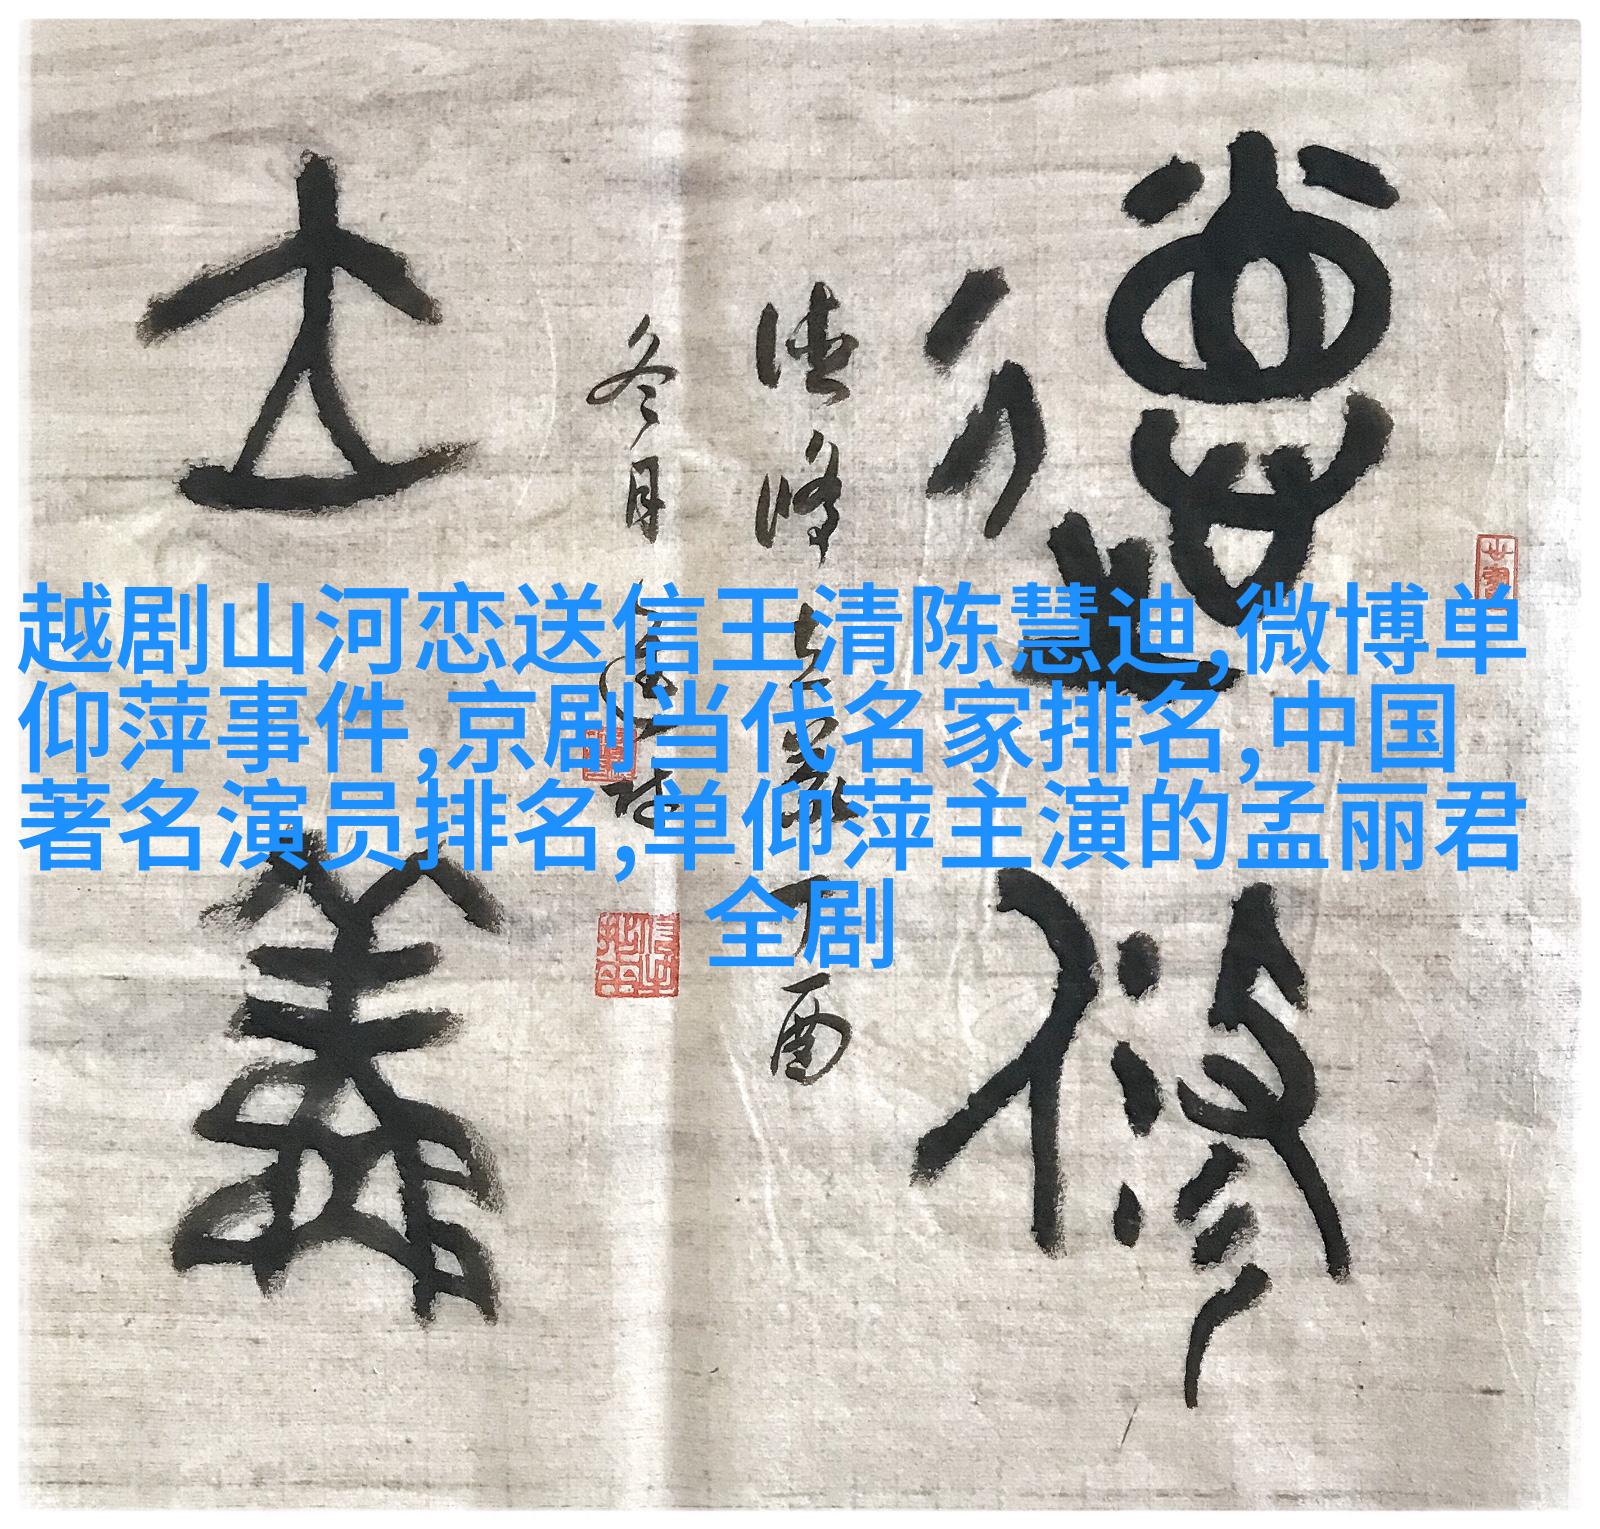 越剧山河恋送信王清陈慧迪,微博单
仰萍事件,京剧当代名家排名,中国
著名演员排名,单仰萍主演的孟丽君
全剧
德修
立義
丁酉
冬月